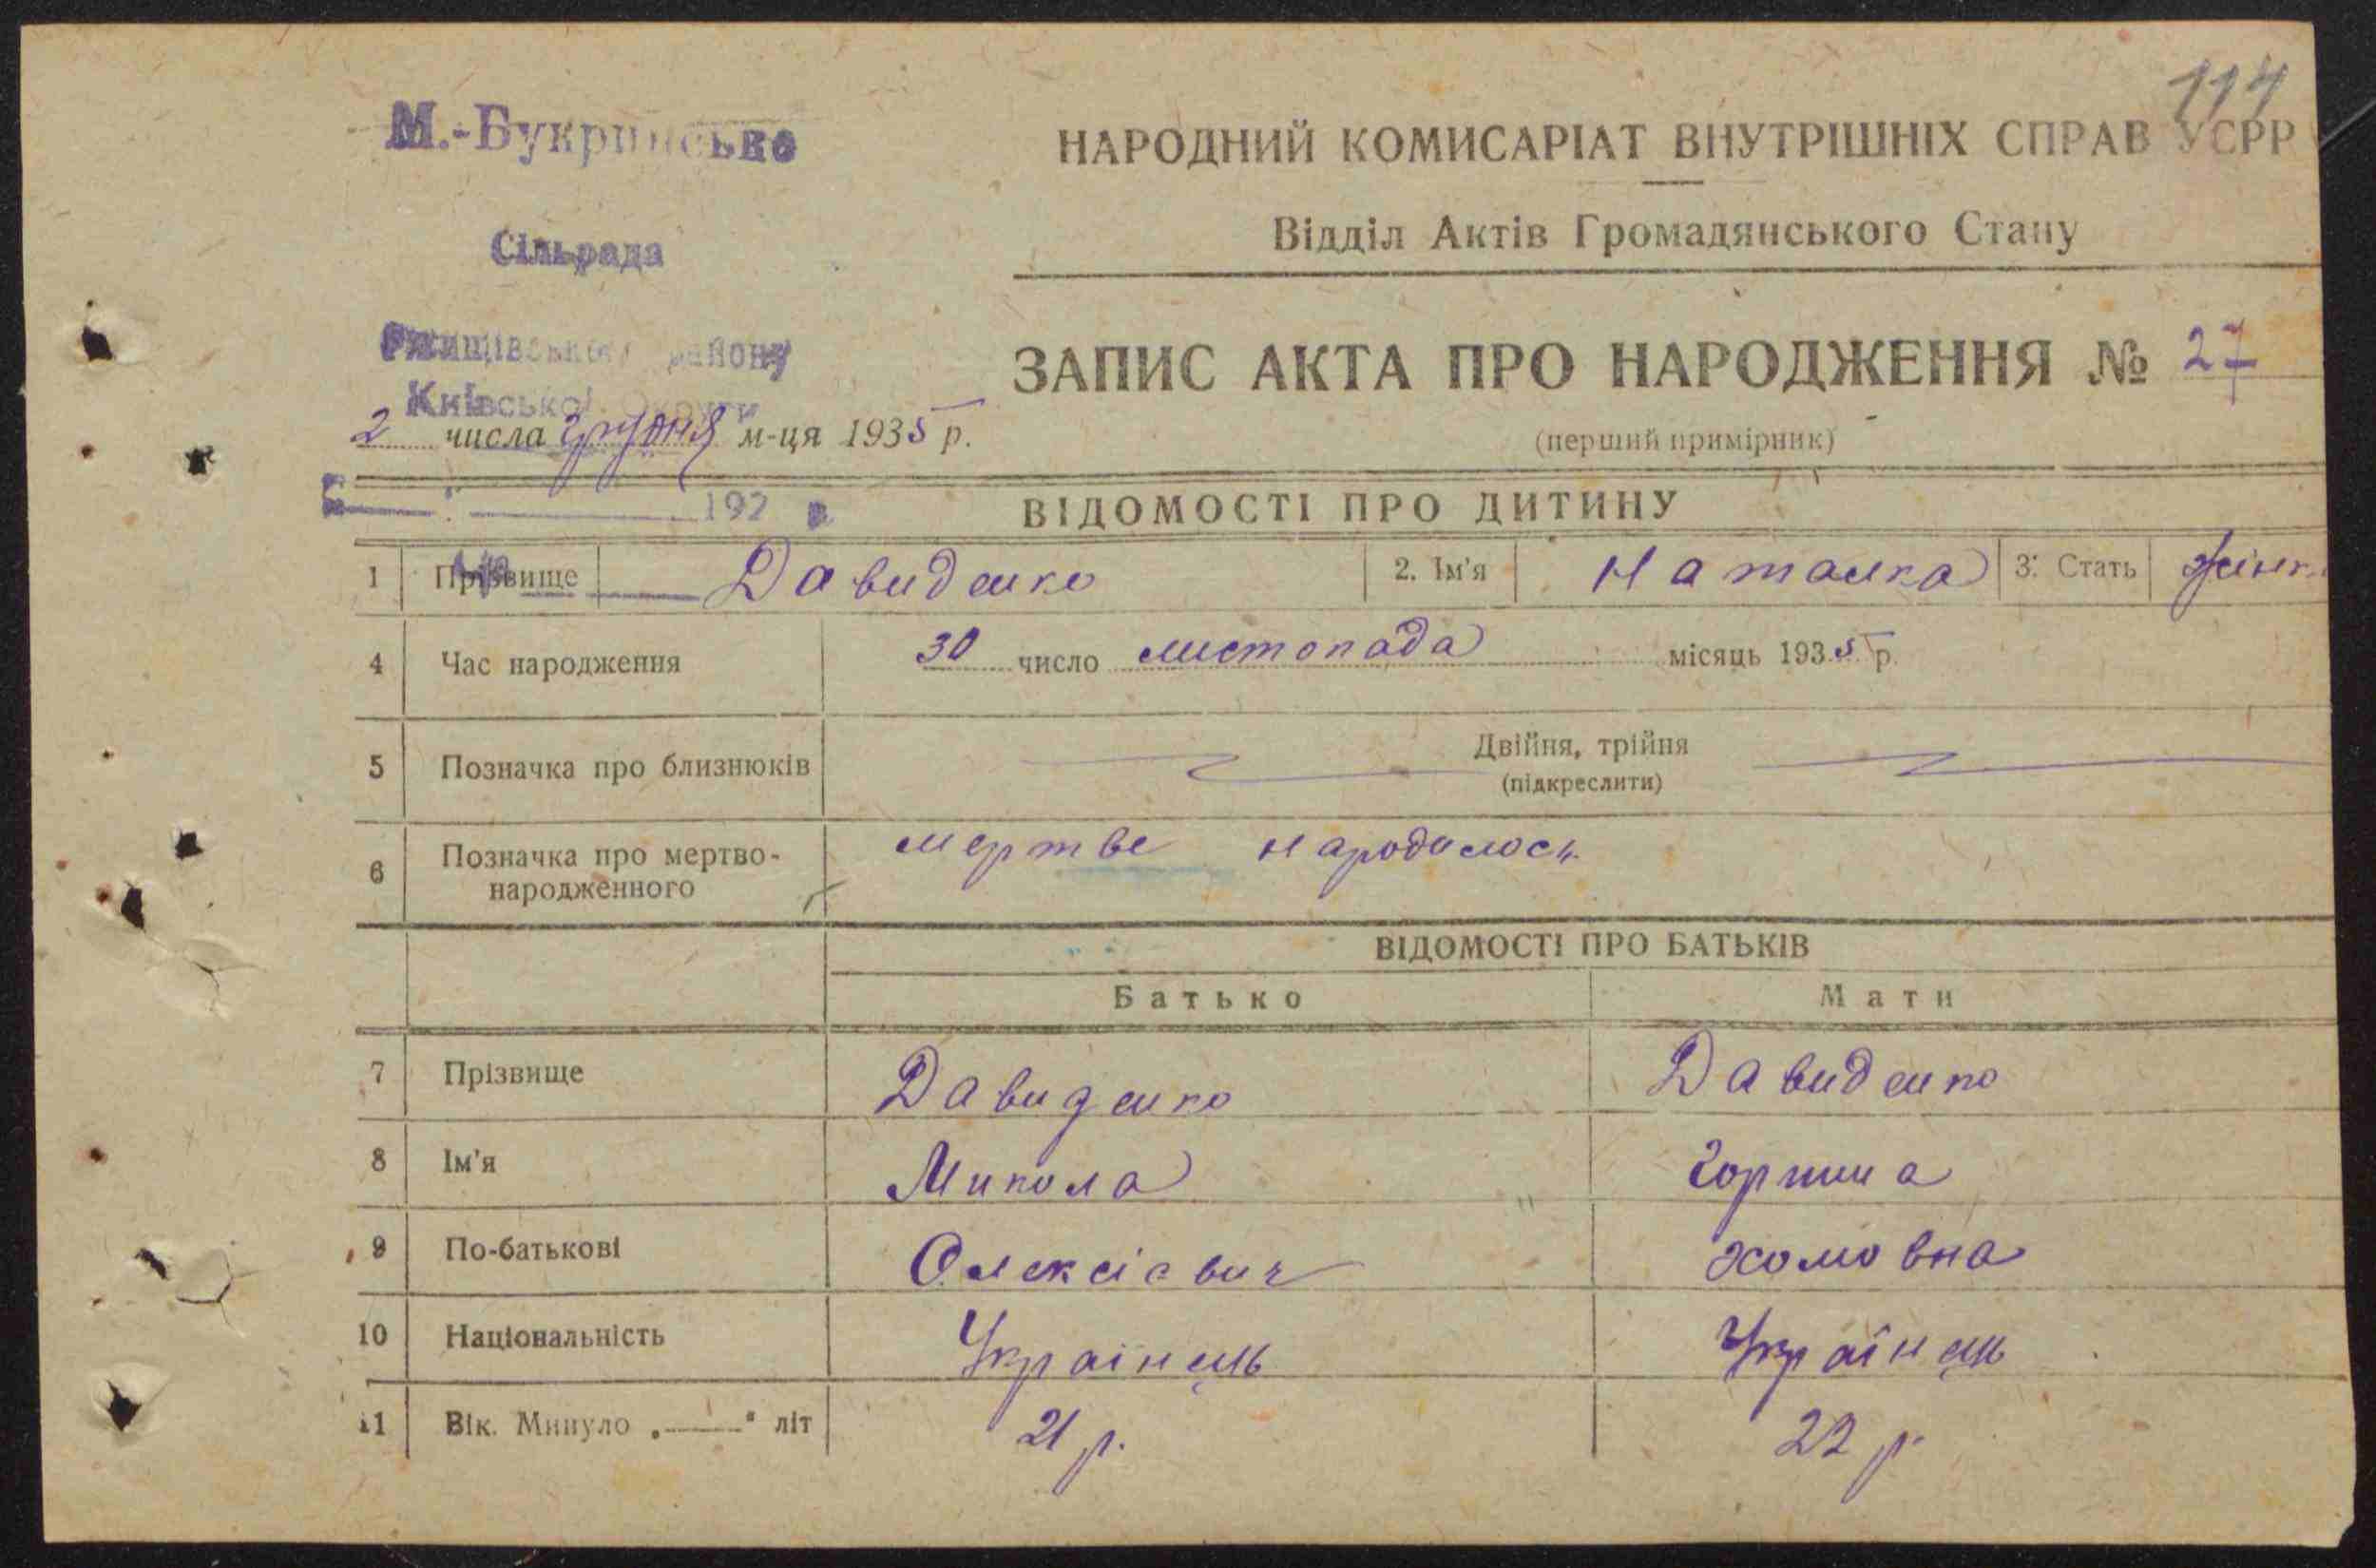 114
М.-Букринська
НАРОДНИЙ КОМИСАРІАТ ВНУТРІШНІХ СПРАВ УСРР
Сільрада
Відділ Актів Громадянського Стану
Ржищівської району
ЗАПИС АКТА ПРО НАРОДЖЕННЯ № 27
Київської Округи
2 числа грудня м-ця 1935 р.
(перший примірник)
192
ВІДОМОСТІ ПРО ДИТИНУ
1 Прізвище Давиденко 2. Ім'я Наталка 3. Стать жінк.
4 Час народження 30 число листопада місяць 1935 р.
5 Позначка про близнюків Двійня, трійня
(підкреслити)
6 Позначка про мертво-
народженного мертве народилось
ВІДОМОСТІ ПРО БАТЬКІВ
Батько Мати
7 Прізвище Давиденко Давиденко
8 Ім'я Микола Горпина
9 По-батькові Олексієвич Хомовна
10 Національність Украінець Українець
11 Вік. Минуло „——" літ 21 р. 22 р.